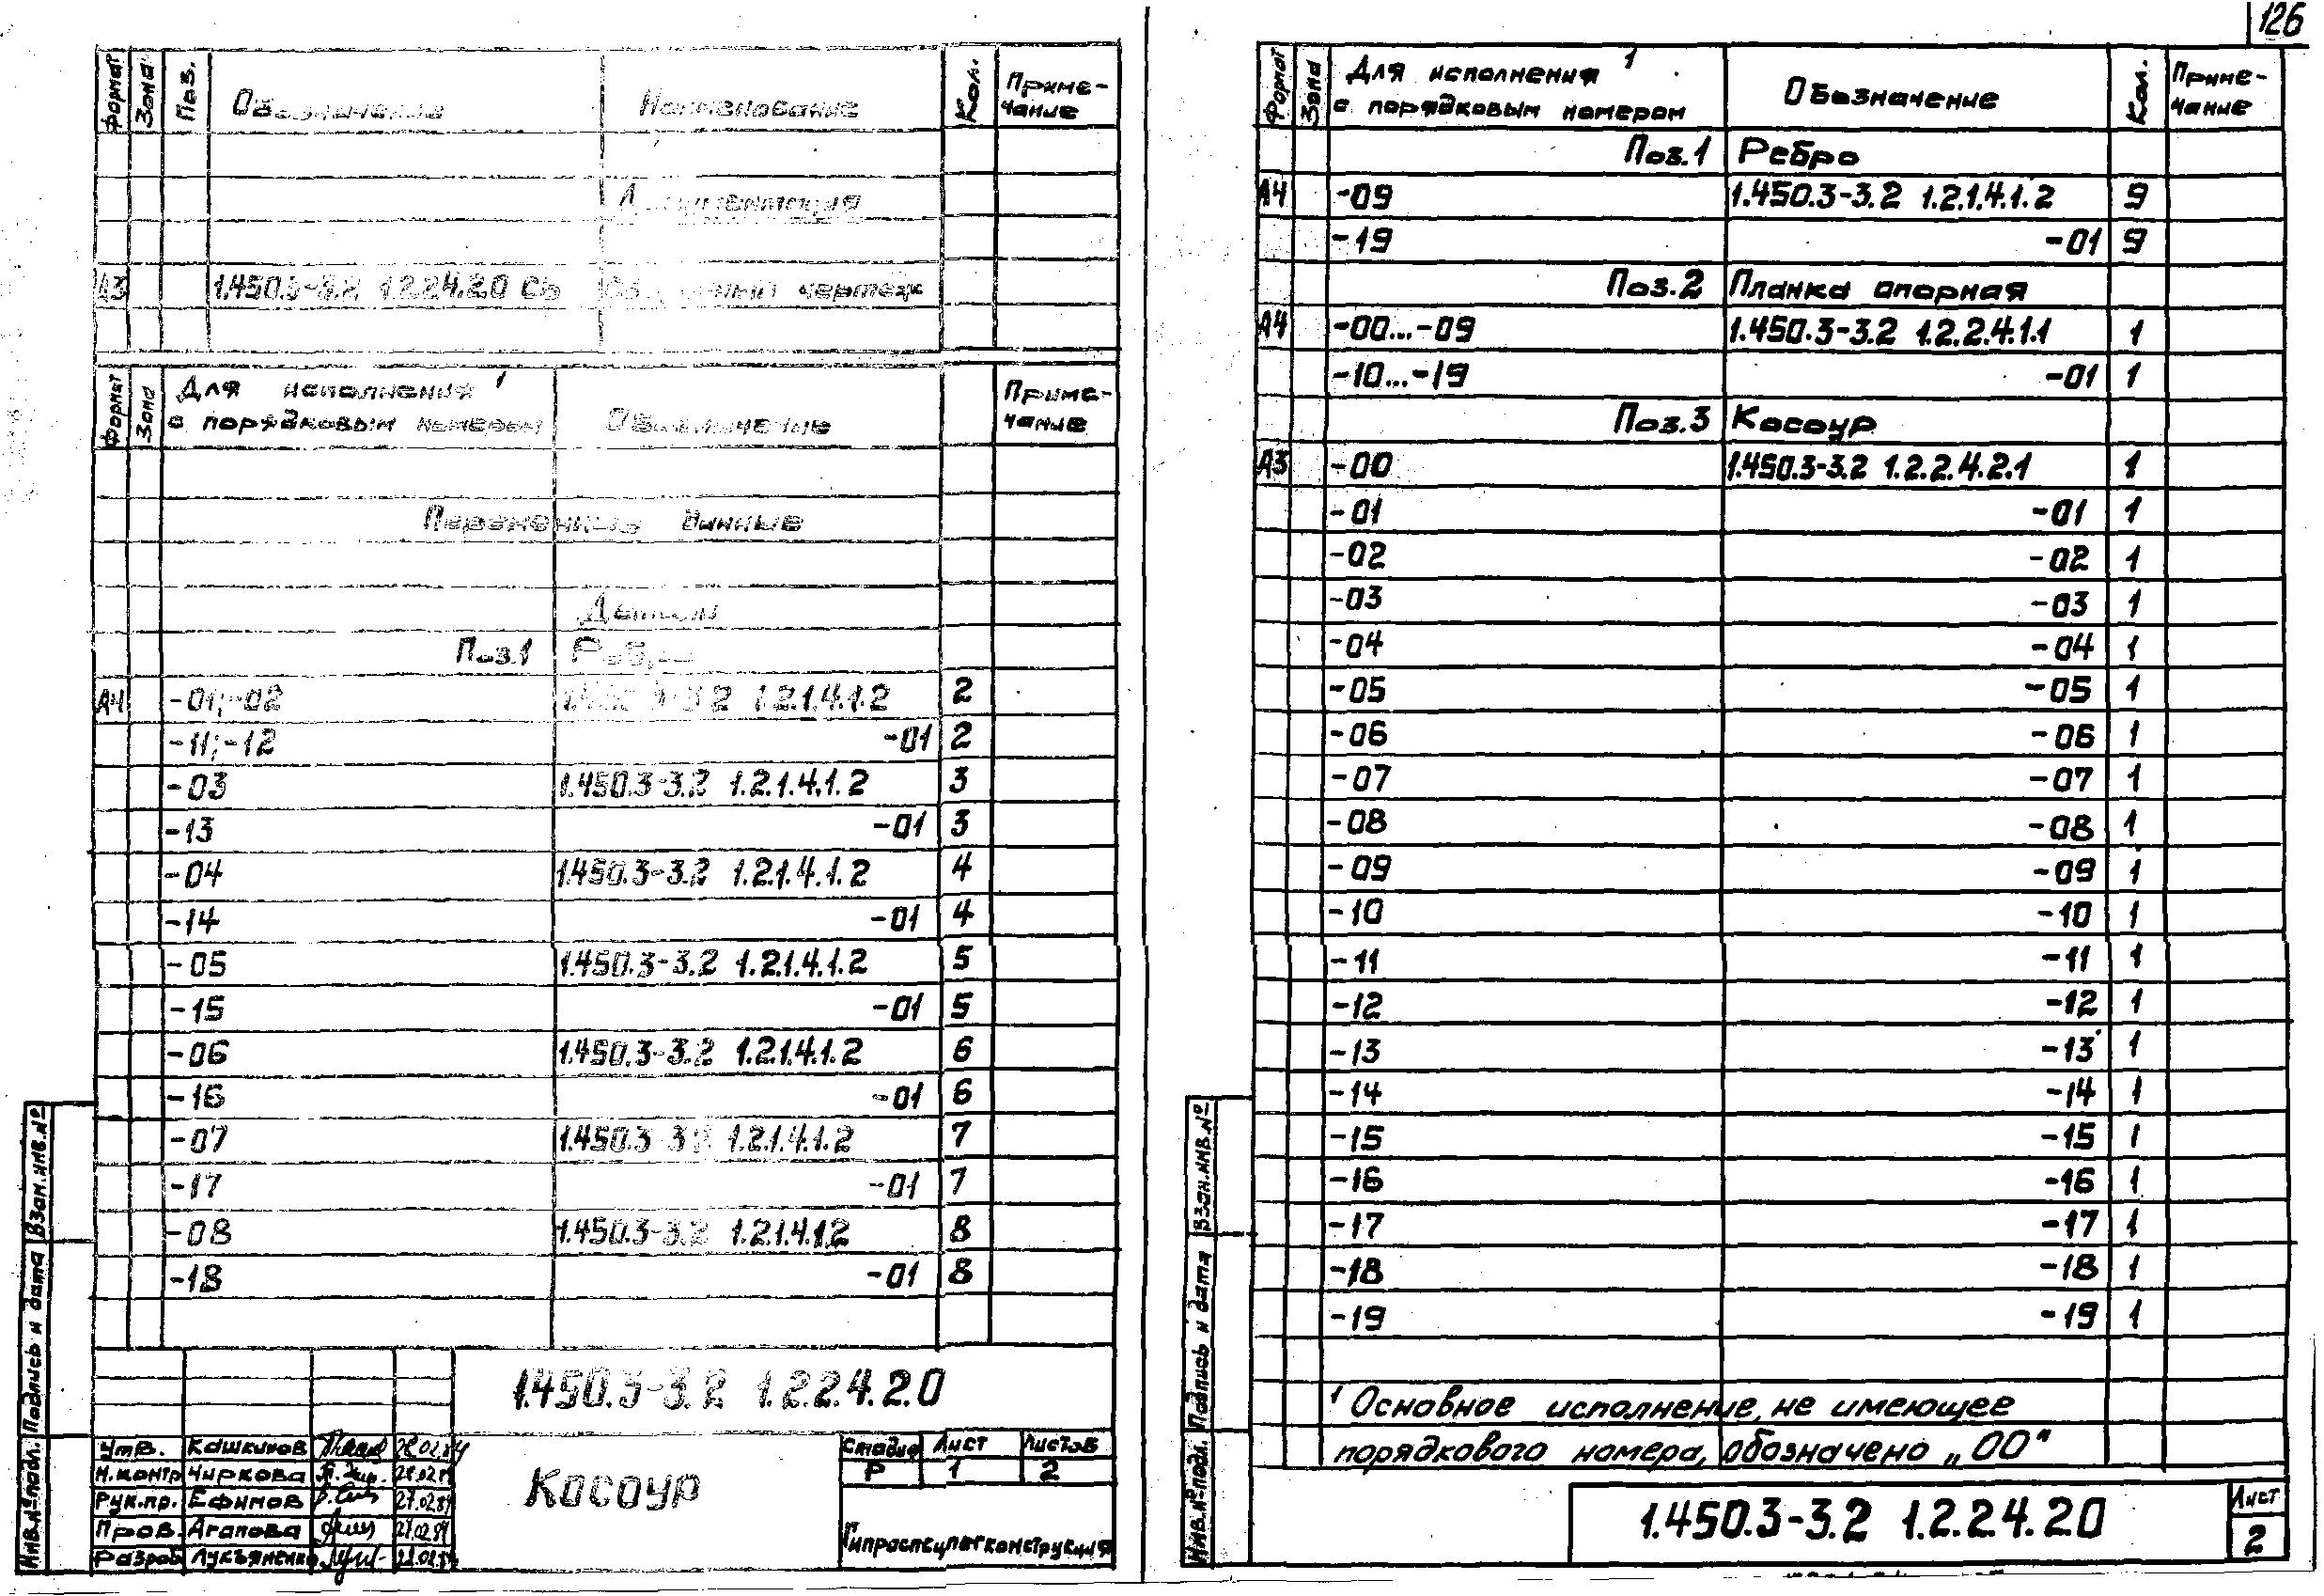 126
Формат Зона Поз. Обозначение Наименование Кол. Приме-
чание
Документация
А3 1.450.3-3.2 1.2.2.4.2.0 СБ Сборочный чертеж
Формат Зона Для исполнения ¹
с порядковым номером Обозначение Приме-
чание
Переменные данные
Детали
Поз.1 Ребро
А4 -01;-02 1.450.3-3.2 1.2.1.4.1.2 2
-11;-12 -01 2
-03 1.450.3-3.2 1.2.1.4.1.2 3
-13 -01 3
-04 1.450.3-3.2 1.2.1.4.1.2 4
-14 -01 4
-05 1.450.3-3.2 1.2.1.4.1.2 5
-15 -01 5
-06 1.450.3-3.2 1.2.1.4.1.2 6
-16 -01 6
-07 1.450.3-3.2 1.2.1.4.1.2 7
-17 -01 7
-08 1.450.3-3.2 1.2.1.4.1.2 8
-18 -01 8
1.450.3-3.2 1.2.2.4.2.0
Утв. Кашкинов 28.02.84
Н.контр Чиркова
Рук.пр. Ефимов 27.02.84
Пров. Агапова 27.02.84
Разраб Лукъяненко
Косоур
Стадия Лист Листов
Р 1 2
Гипроспецлегконструкция
Инв.№подл. Подпись и дата Взам.инв.№
Формат Зона Для исполнения ¹
с порядковым номером Обозначение Кол. Приме-
чание
Поз.1 Ребро
А4 -09 1.450.3-3.2 1.2.1.4.1.2 9
-19 -01 9
Поз.2 Планка опорная
А4 -00...-09 1.450.3-3.2 1.2.2.4.1.1 1
-10...-19 -01 1
Поз.3 Косоур
А3 -00 1.450.3-3.2 1.2.2.4.2.1 1
-01 -01 1
-02 -02 1
-03 -03 1
-04 -04 1
-05 -05 1
-06 -06 1
-07 -07 1
-08 -08 1
-09 -09 1
-10 -10 1
-11 -11 1
-12 -12 1
-13 -13 1
-14 -14 1
-15 -15 1
-16 -16 1
-17 -17 1
-18 -18 1
-19 -19 1
¹ Основное исполнение, не имеющее
порядкового номера, обозначено „00"
1.450.3-3.2 1.2.2.4.2.0
Лист
2
Инв.№подл. Подпись и дата Взам.инв.№